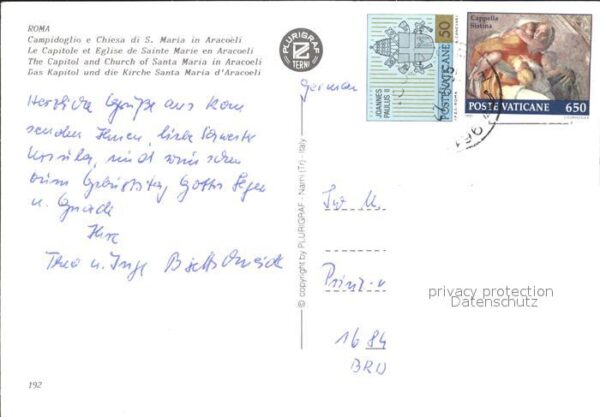 ROMA
Campidoglio e Chiesa di S. Maria in Aracoeli
Le Capitole et Eglise de Sainte Marie en Aracoeli
The Capitol and Church of Santa Maria in Aracoeli
Das Kapitol und die Kirche Santa Maria d'Aracoeli
PLURIGRAF
TERNI
JOANNES PAULUS II
POSTE VATICANE 50
Cappella Sistina
POSTE VATICANE 650
german
Herzliche Grüße aus Rom
senden Ihnen, liebe Schwester
Ursula, und wünschen
zum Geburtstag Gottes Segen
u. Gnade
Ihre
Theo u. Inge
© copyright by PLURIGRAF - Narni (Tr) - Italy
privacy protection
Datenschutz
1684
BRD
192